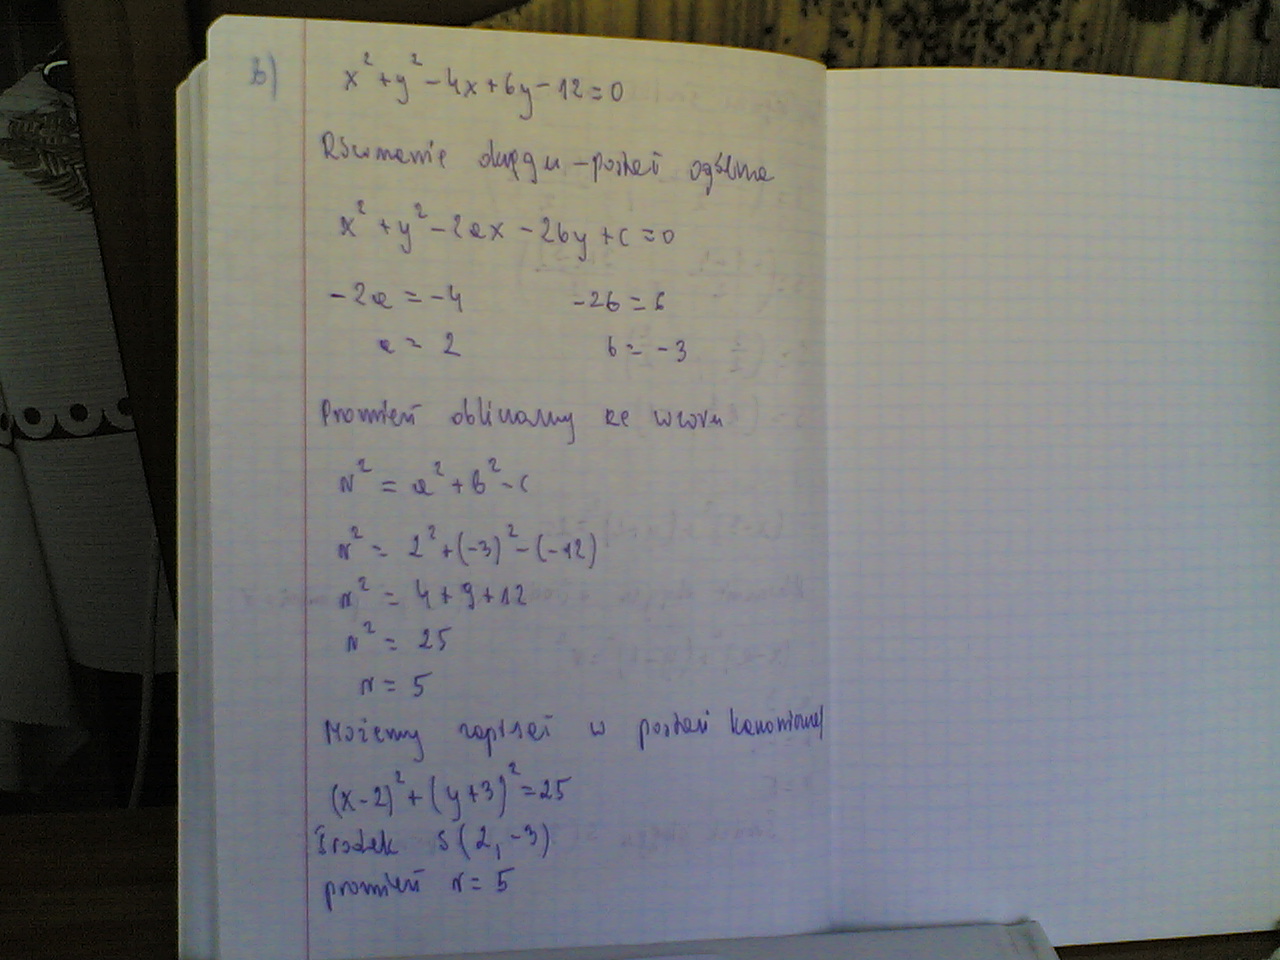 b)
x² + y² - 4x + 6y - 12 = 0
Równanie okręgu - postać ogólna
x² + y² - 2ax - 2by + c = 0
-2a = -4 -2b = 6
a = 2 b = -3
Promień obliczamy ze wzoru
r² = a² + b² - c
r² = 2² + (-3)² - (-12)
r² = 4 + 9 + 12
r² = 25
r = 5
Możemy zapisać w postaci kanonicznej
(x - 2)² + (y + 3)² = 25
środek S(2, -3)
promień r = 5